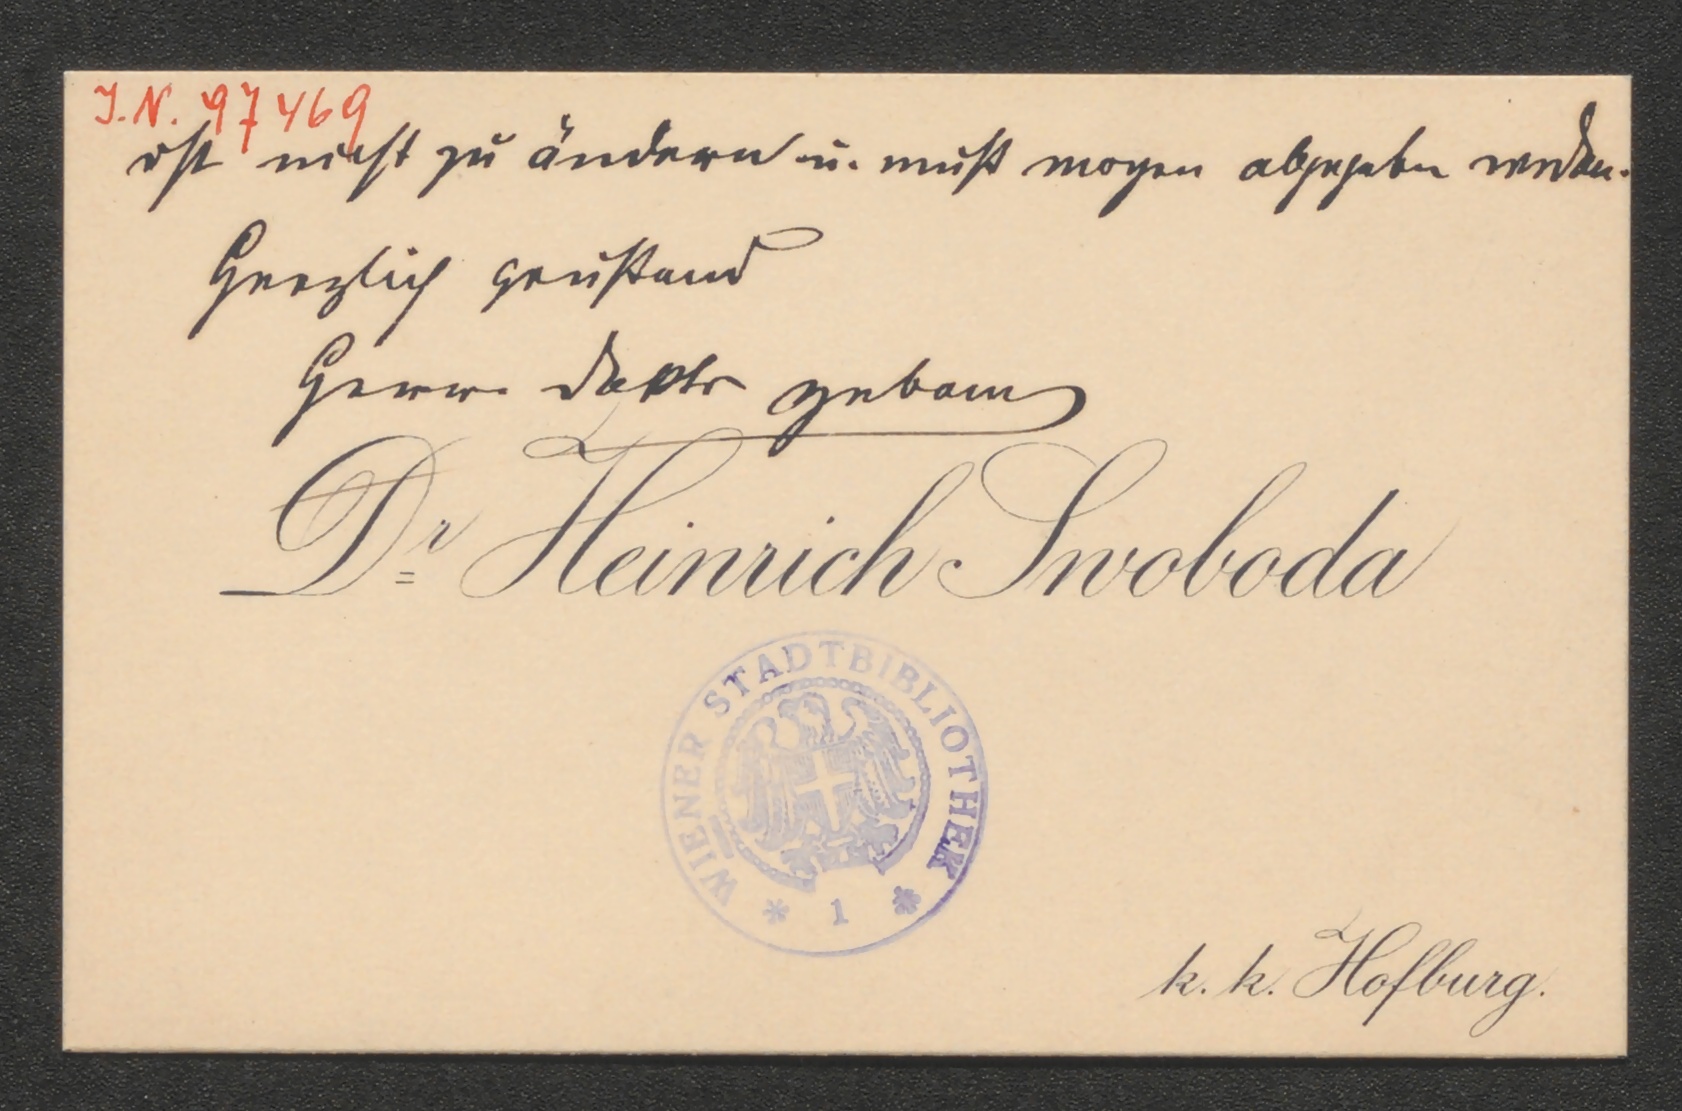 I.N. 97469
ist nicht zu ändern u. muß morgen abgegeben werden.
Herzlich grüßend
Ihr
Dr Heinrich Swoboda
WIENER STADTBIBLIOTHEK
* 1 *
k. k. Hofburg.